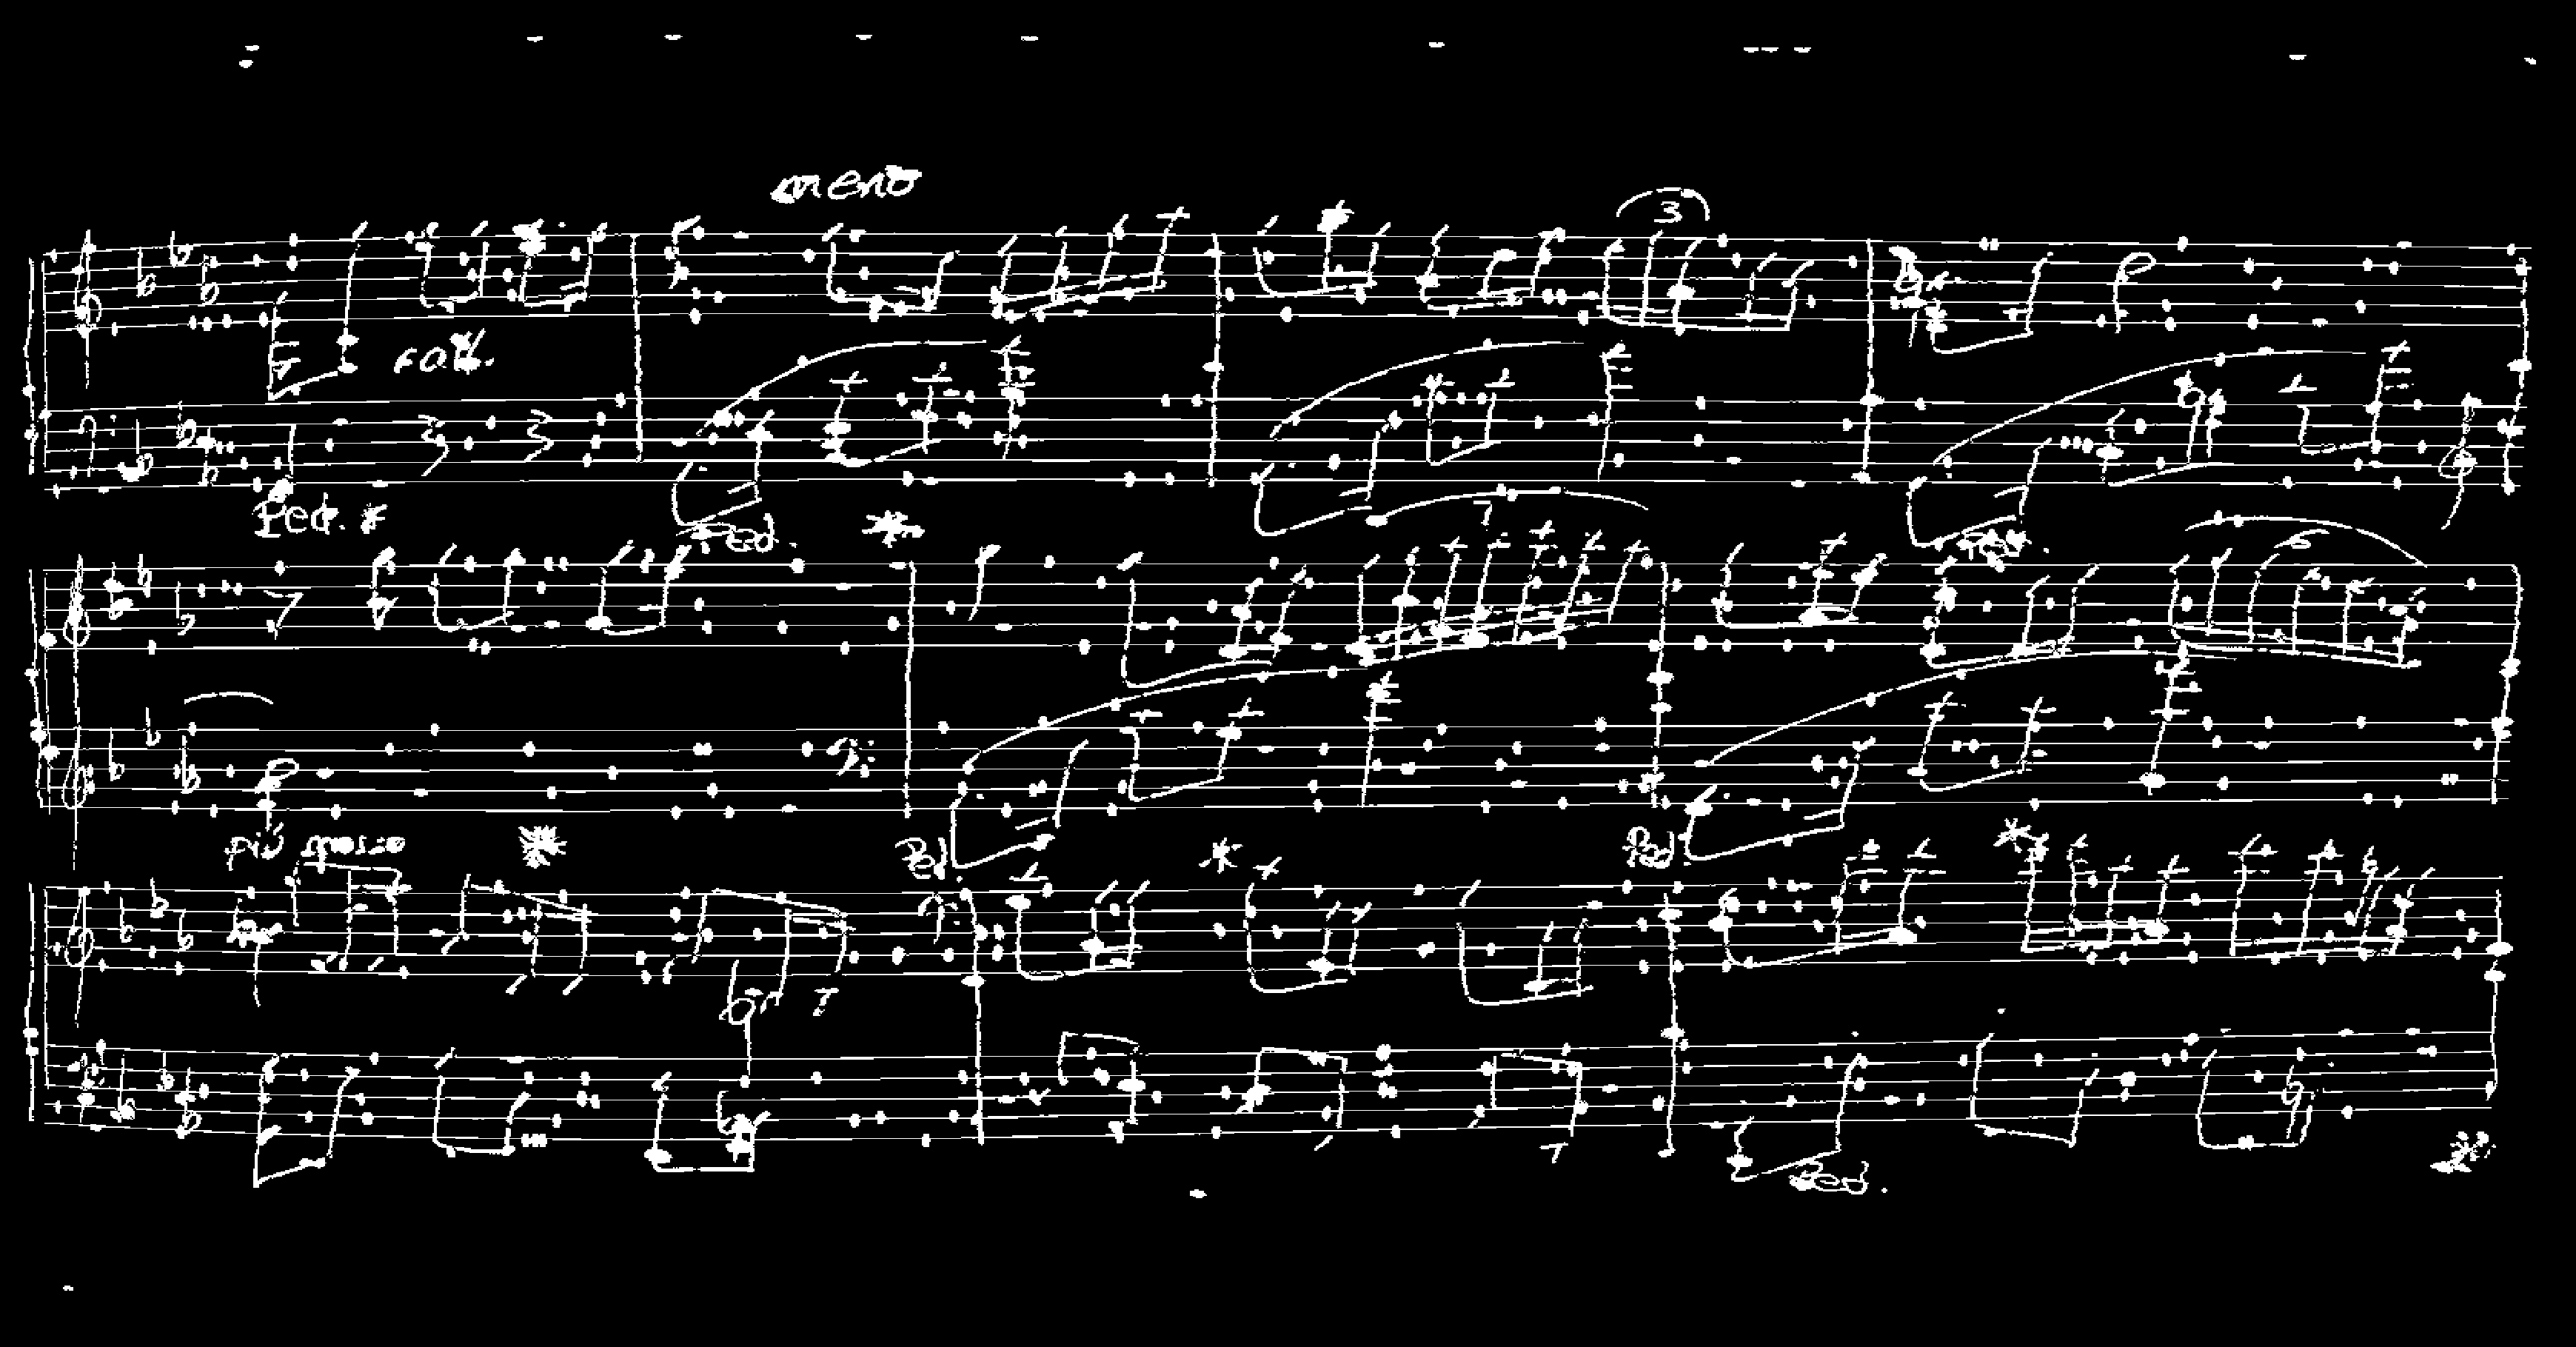 meno
3
rall.
Ped. *
Ped. *
Ped.
7
6
più mosso *
Ped. *
Ped. *
Ped. *